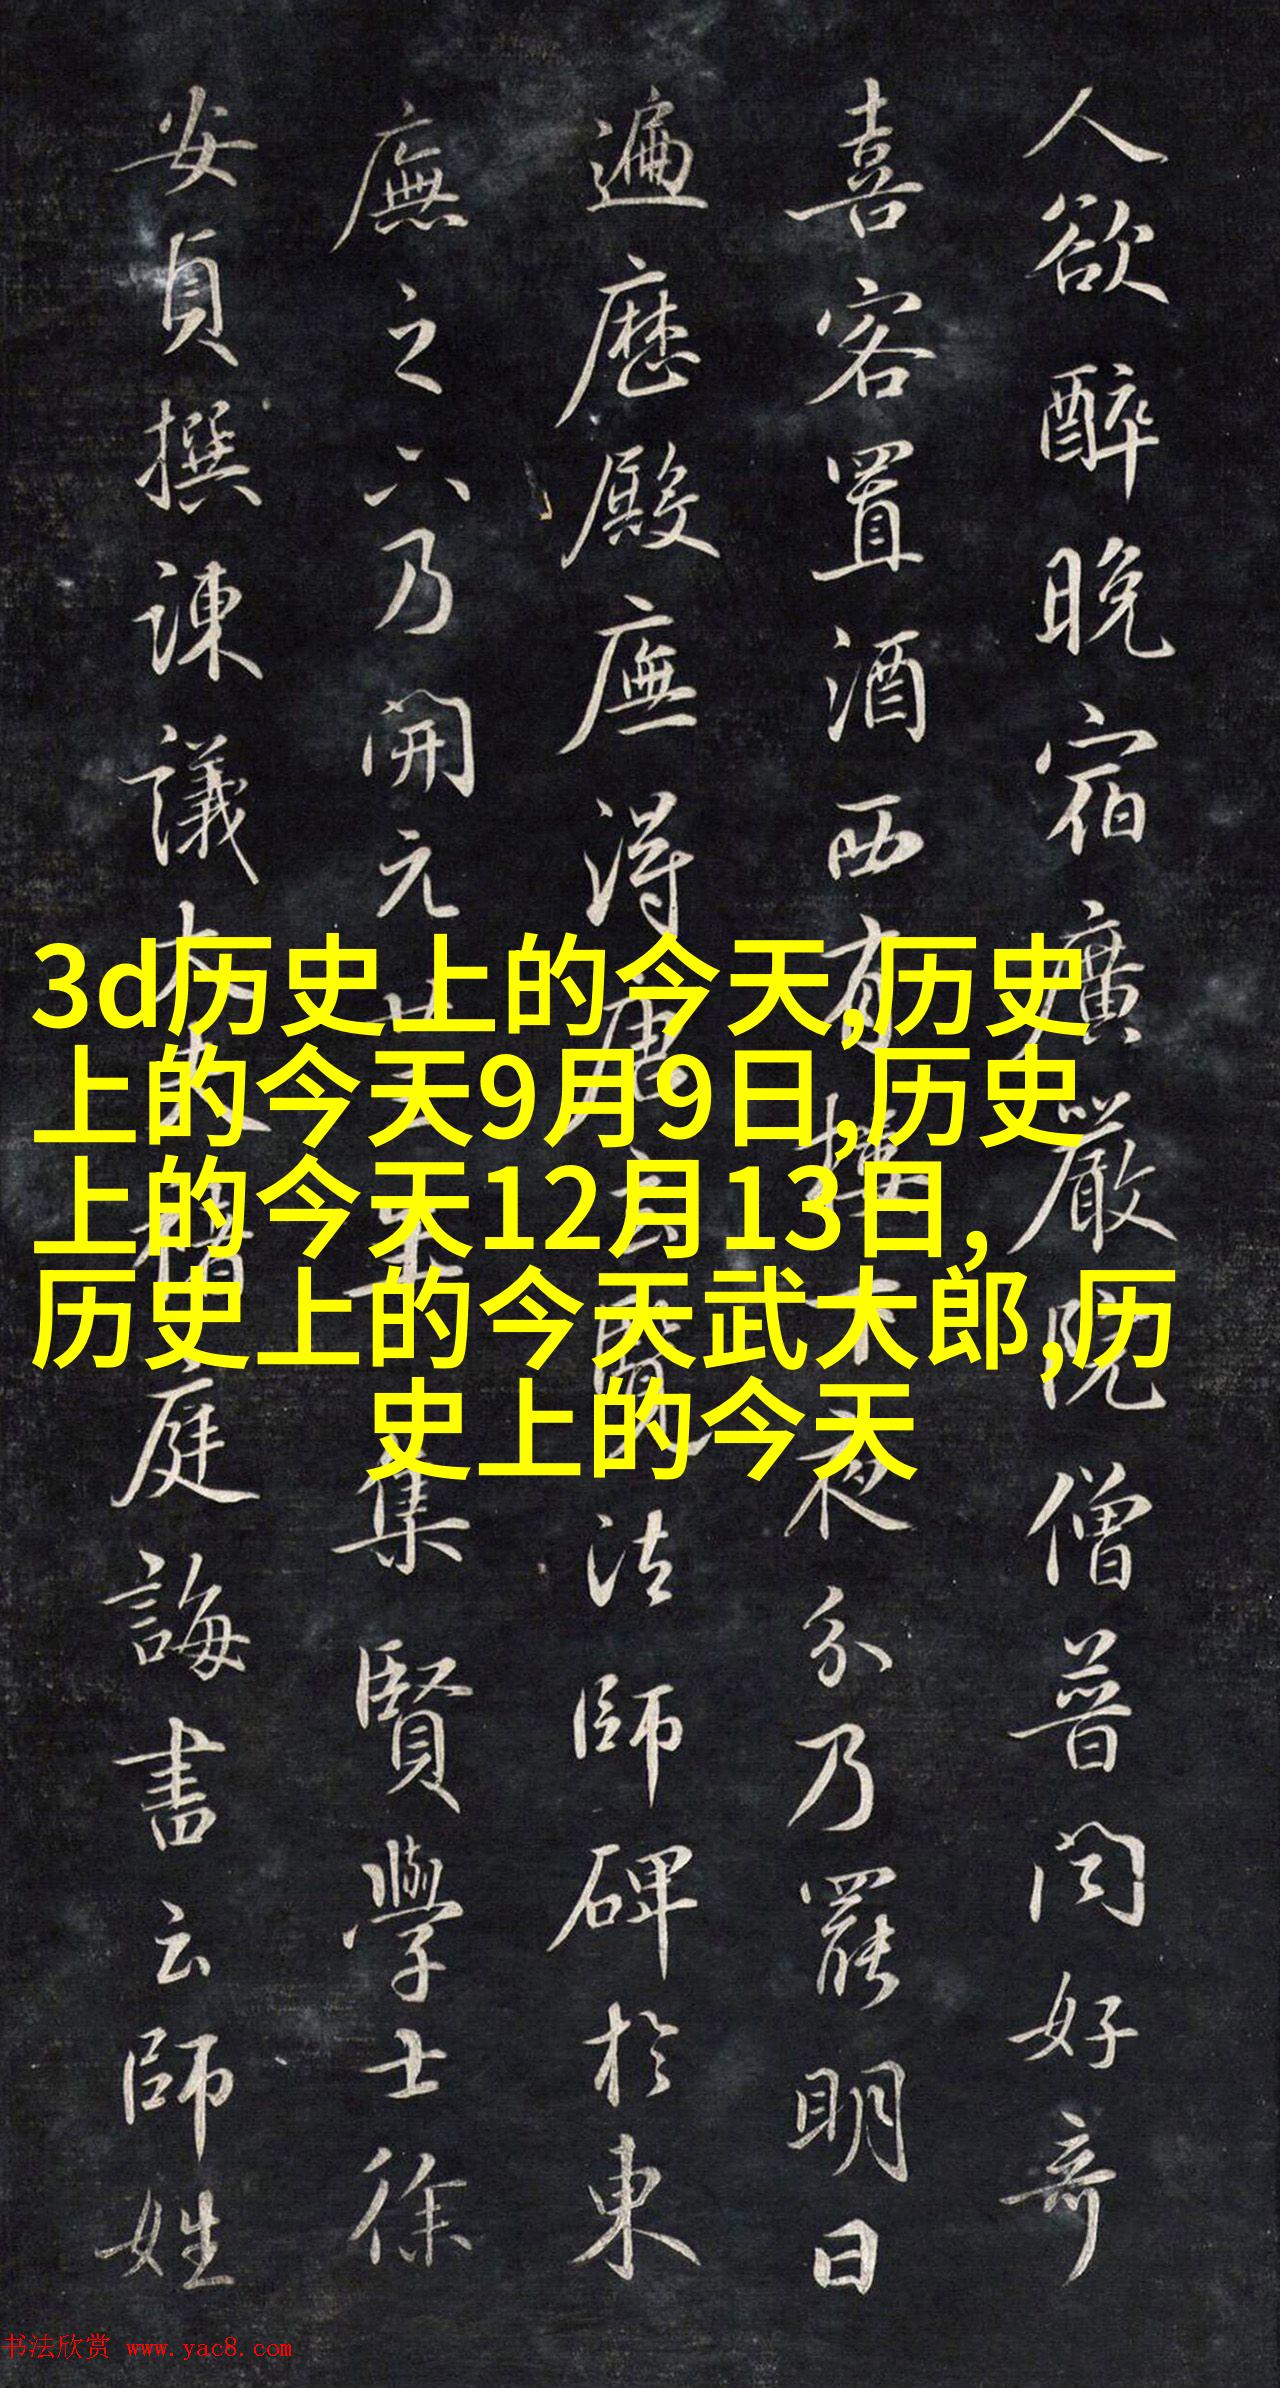 人欲醉晚宿廣嚴院僧普闻好竒
喜客置酒西有樓下夜分乃罷明日
遍歷殿廡得唐玄覽法師碑於東
廡之下乃開元廿三年集賢學士徐
安貞撰諫議大夫褚庭誨書云師姓
3d历史上的今天,历史
上的今天9月9日,历史
上的今天12月13日,
历史上的今天武大郎,历
史上的今天
书法欣赏 www.yac8.com